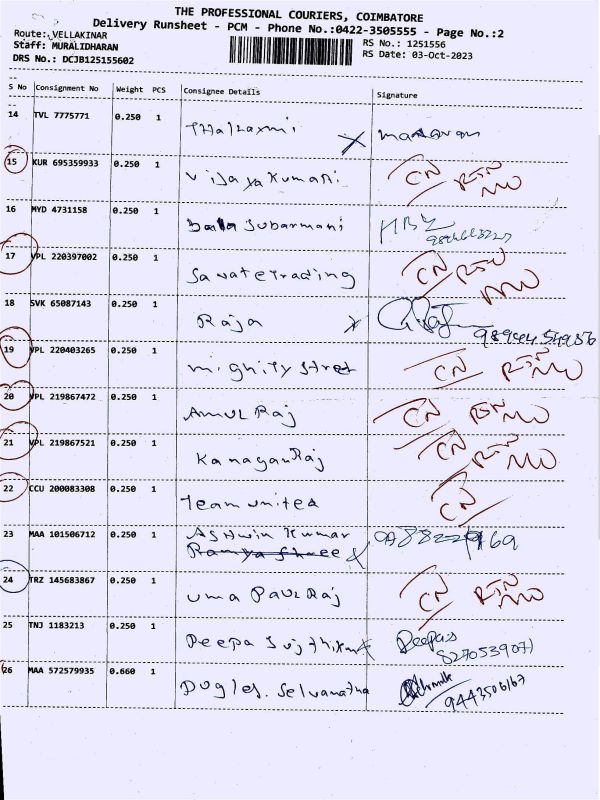 THE PROFESSIONAL COURIERS, COIMBATORE
Delivery Runsheet - PCM - Phone No.:0422-3505555 - Page No.:2
Route: VELLAKINAR
RS No.: 1251556
Staff: MURALIDHARAN
RS Date: 03-Oct-2023
DRS No.: DCJB125155602
S No Consignment No Weight PCS Consignee Details Signature
14 TVL 7775771 0.250 1 Thalaxmi
15 KUR 695359933 0.250 1 Vijayakumari CN RTN
16 MYD 4731158 0.250 1 bala Subarmani
17 VPL 220397002 0.250 1 Savatetrading CN RTN
18 SVK 65087143 0.250 1 Raja
19 VPL 220403265 0.250 1 mighity Stret CN RTN
20 VPL 219867472 0.250 1 Amul Raj CN RTN
21 VPL 219867521 0.250 1 KanaganRaj CN RTN
22 CCU 200083308 0.250 1 Team united CN
23 MAA 101506712 0.250 1 Ashwin Kumar
Ramya Shree
24 TRZ 145683867 0.250 1 uma PaulRaj CN RTN
25 TNJ 1183213 0.250 1 Deepa Deepa.s
8270539071
26 MAA 572579935 0.660 1 Dugles. Selvanatha
9443506167